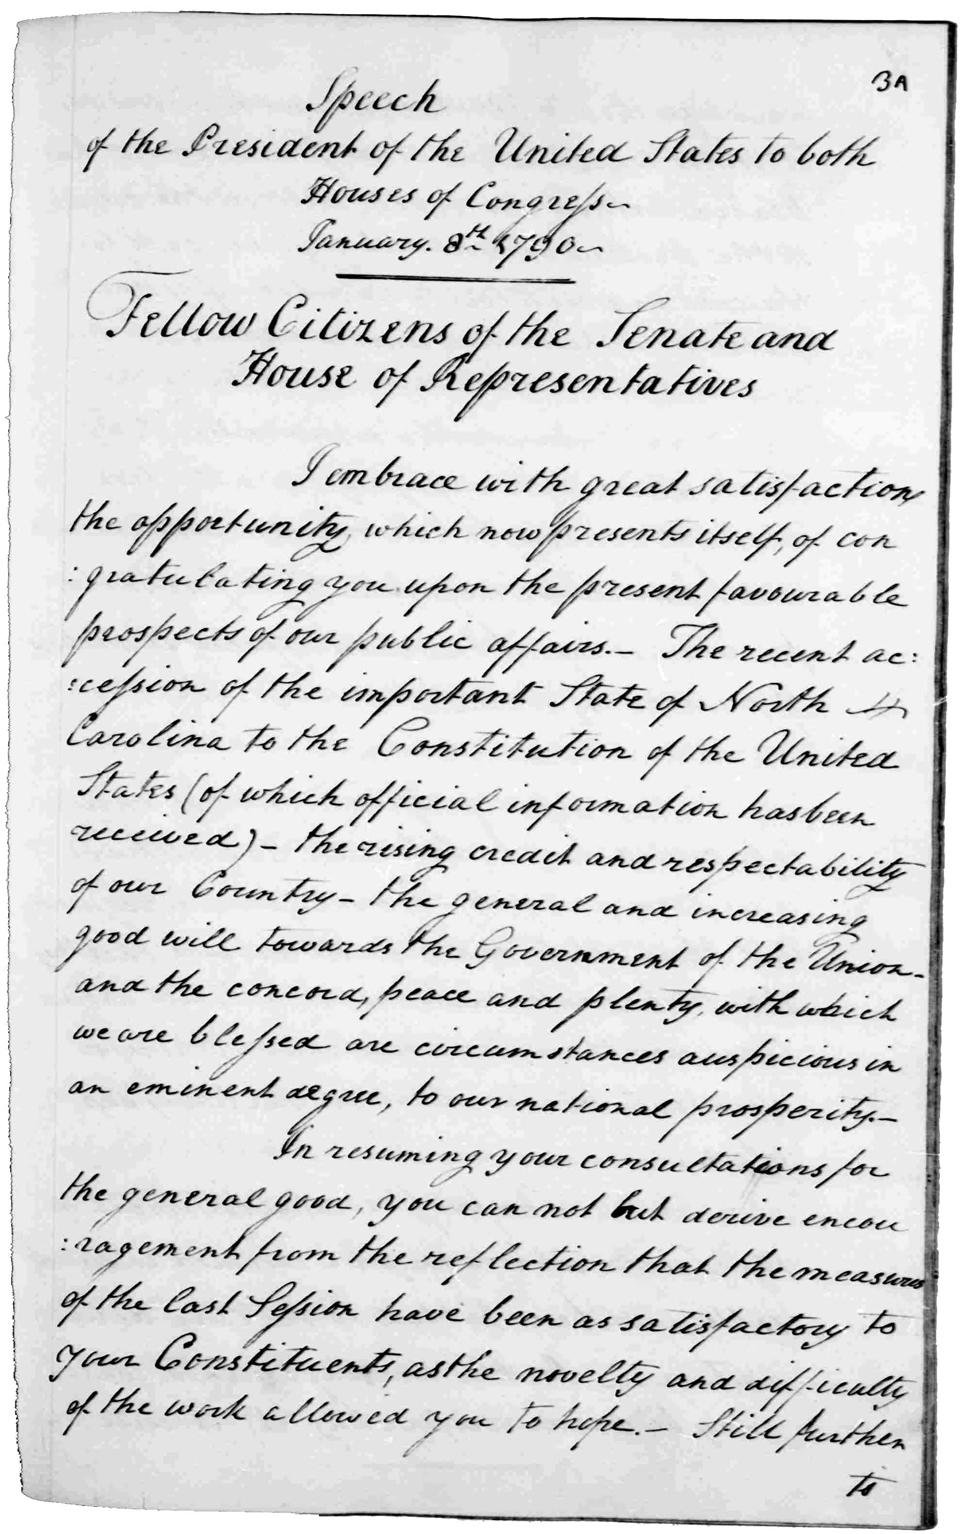 3A
Speech
of the President of the United States to both
Houses of Congreſs
January. 8th 1790
Fellow Citizens of the Senate and
House of Representatives
I embrace with great satisfaction
the opportunity, which now presents itself, of con
:gratulating you upon the present favourable
prospects of our public affairs.— The recent ac:
:ceſsion of the important State of North
Carolina to the Constitution of the United
States (of which official information has been
received) – the rising credit and respectability
of our Country – the general and increasing
good will towards the Government of the Union –
and the concord, peace and plenty, with which
we are bleſsed are circumstances auspicious in
an eminent degree, to our national prosperity.—
In resuming your consultations for
the general good, you can not but derive encou
:ragement from the reflection that the measures
of the last Seſsion have been as satisfactory to
your Constituents, as the novelty and difficulty
of the work allowed you to hope.— Still further
to